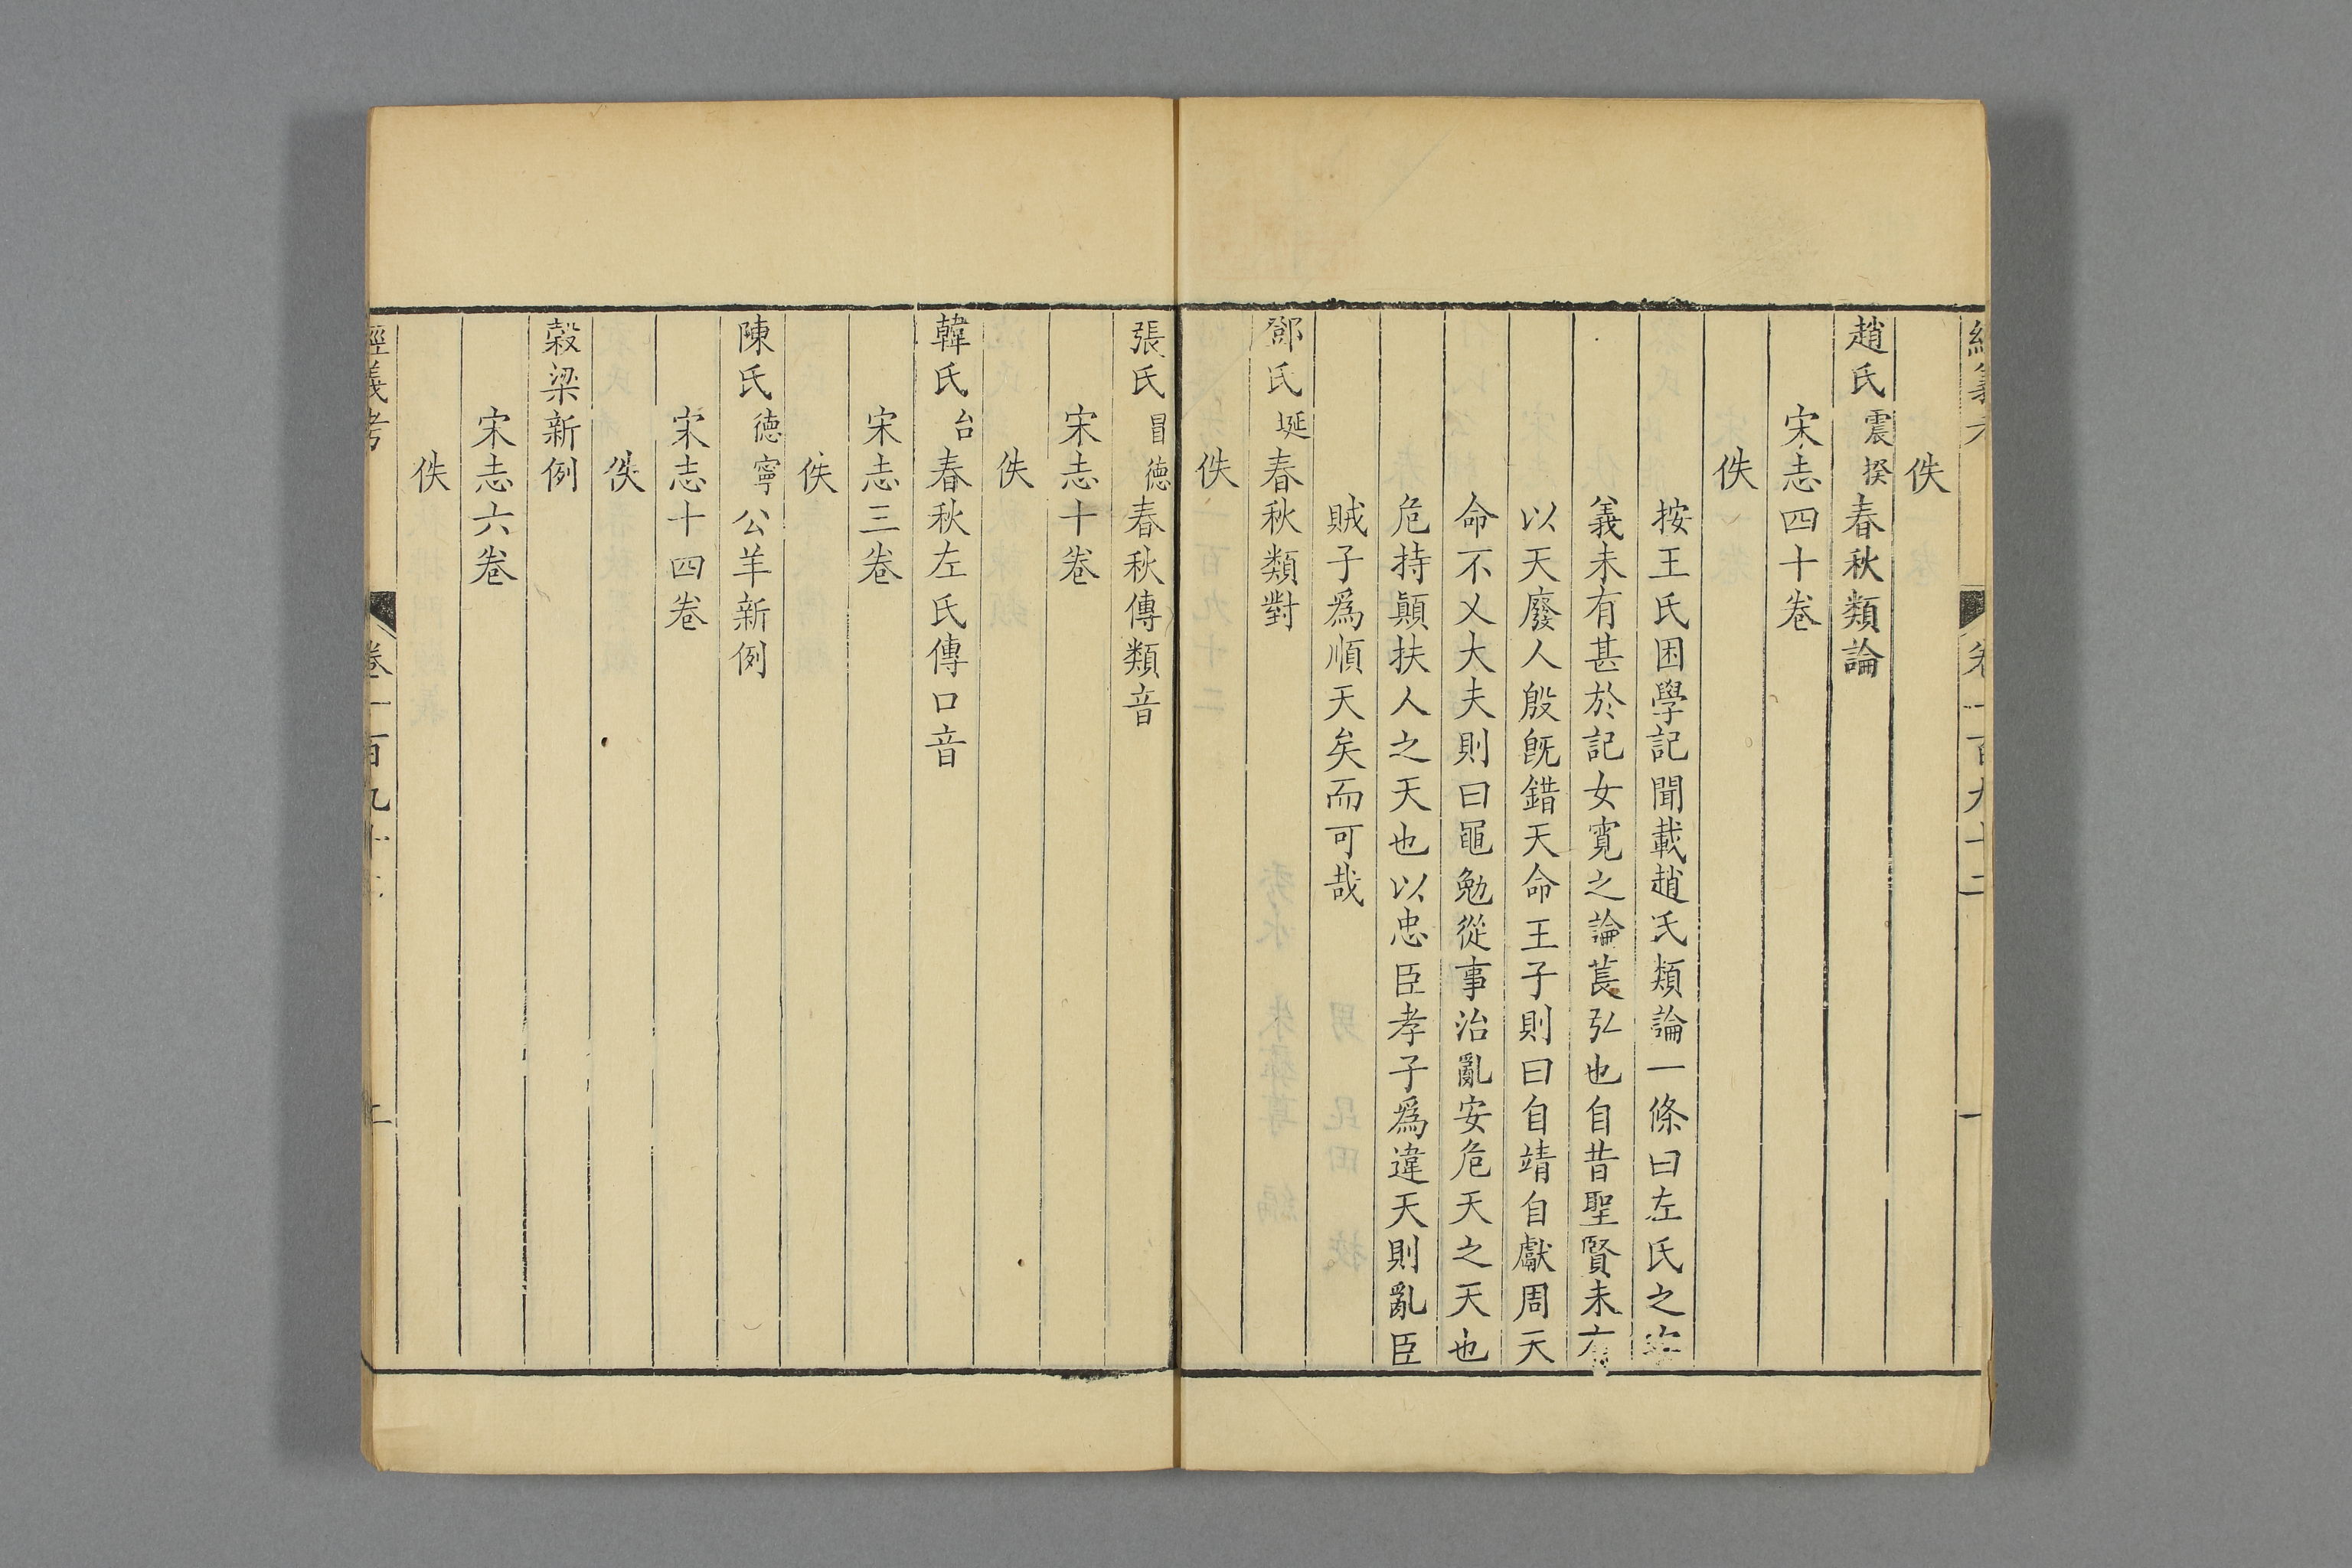 佚
趙氏震揆春秋類論
宋志四十卷
佚
按王氏困學記聞載趙氏類論一條曰左氏之
義未有甚於記女寛之論萇弘也自昔聖賢未有
以天廢人殷旣錯天命王子則曰自靖自獻周天
命不乂大夫則曰黽勉從事治亂安危天之天也
危持顚扶人之天也以忠臣孝子爲違天則亂臣
賊子爲順天矣而可哉
鄧氏埏春秋類對
佚
張氏冒德春秋傳類音
宋志十卷
佚
韓氏台春秋左氏傳口音
宋志三卷
佚
陳氏德寧公羊新例
宋志十四卷
佚
穀梁新例
宋志六卷
佚
經義考 卷一百九十二